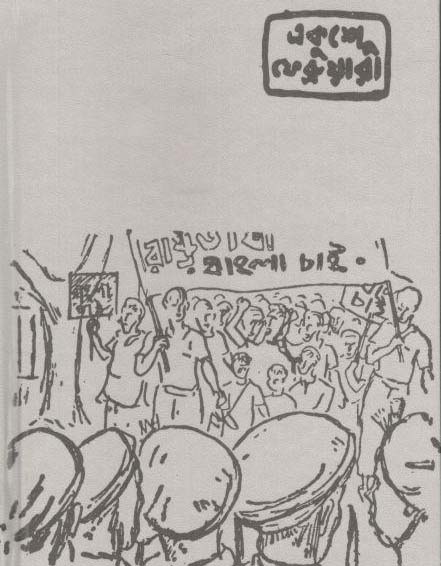 একুশে
ফেব্রুয়ারী
রাষ্ট্রভাষা
বাংলা চাই •
চাই